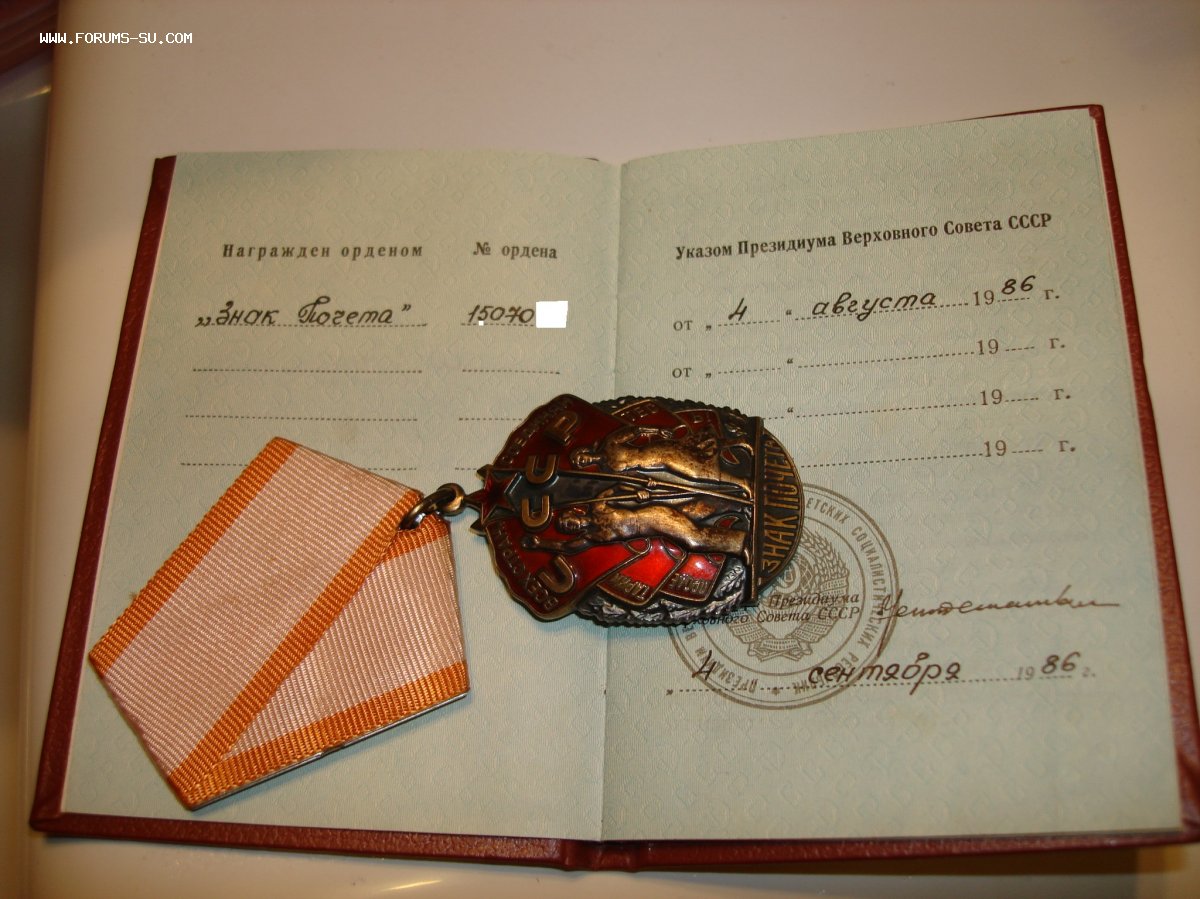 WWW.FORUMS-SU.COM
Награжден орденом № ордена
„Знак Почета” 15070
Указом Президиума Верховного Совета СССР
от „ 4 “ августа 1986 г.
от „ “ 19 г.
“ 19 г.
19 г.
СССР
ЗНАК ПОЧЕТА
Президиума
Верховного Совета СССР
„ 4 сентября 1986 г.